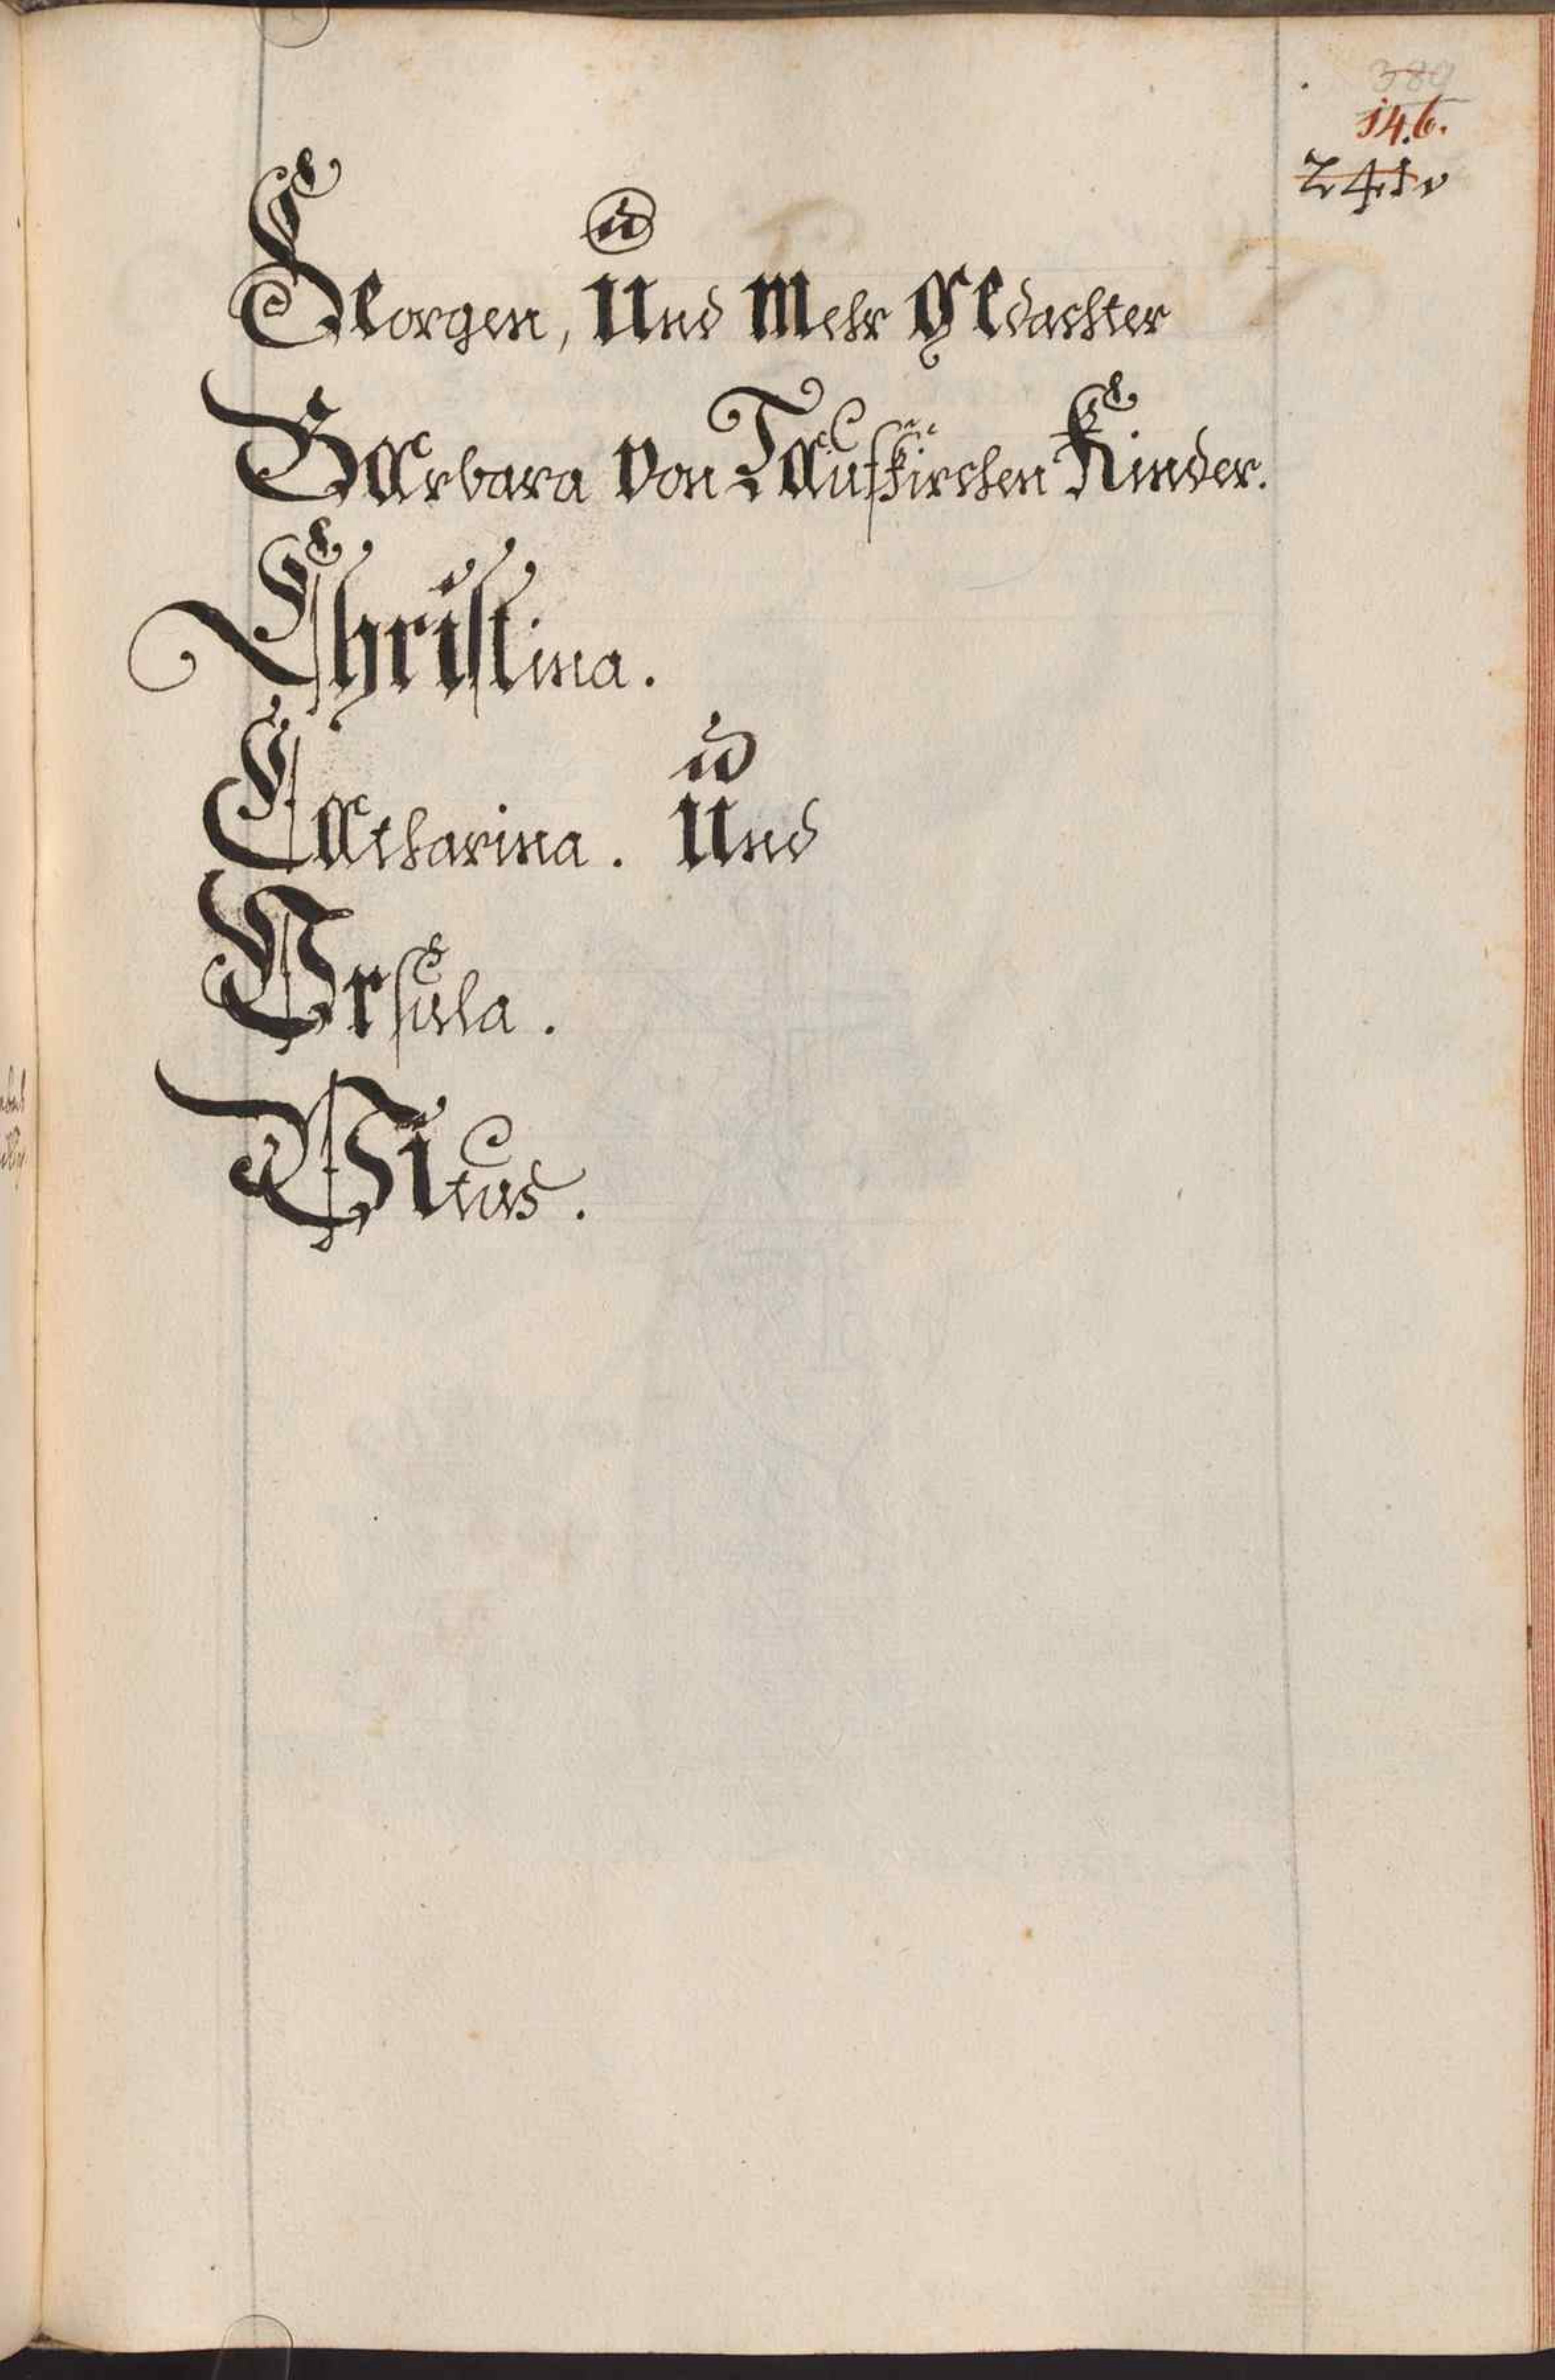 389
146.
241v
Georgen, Und Mehr gedachter
Barbara von Taufkirchen Kinder.
Christina.
Catharina. Und
Ursula.
Vitus.